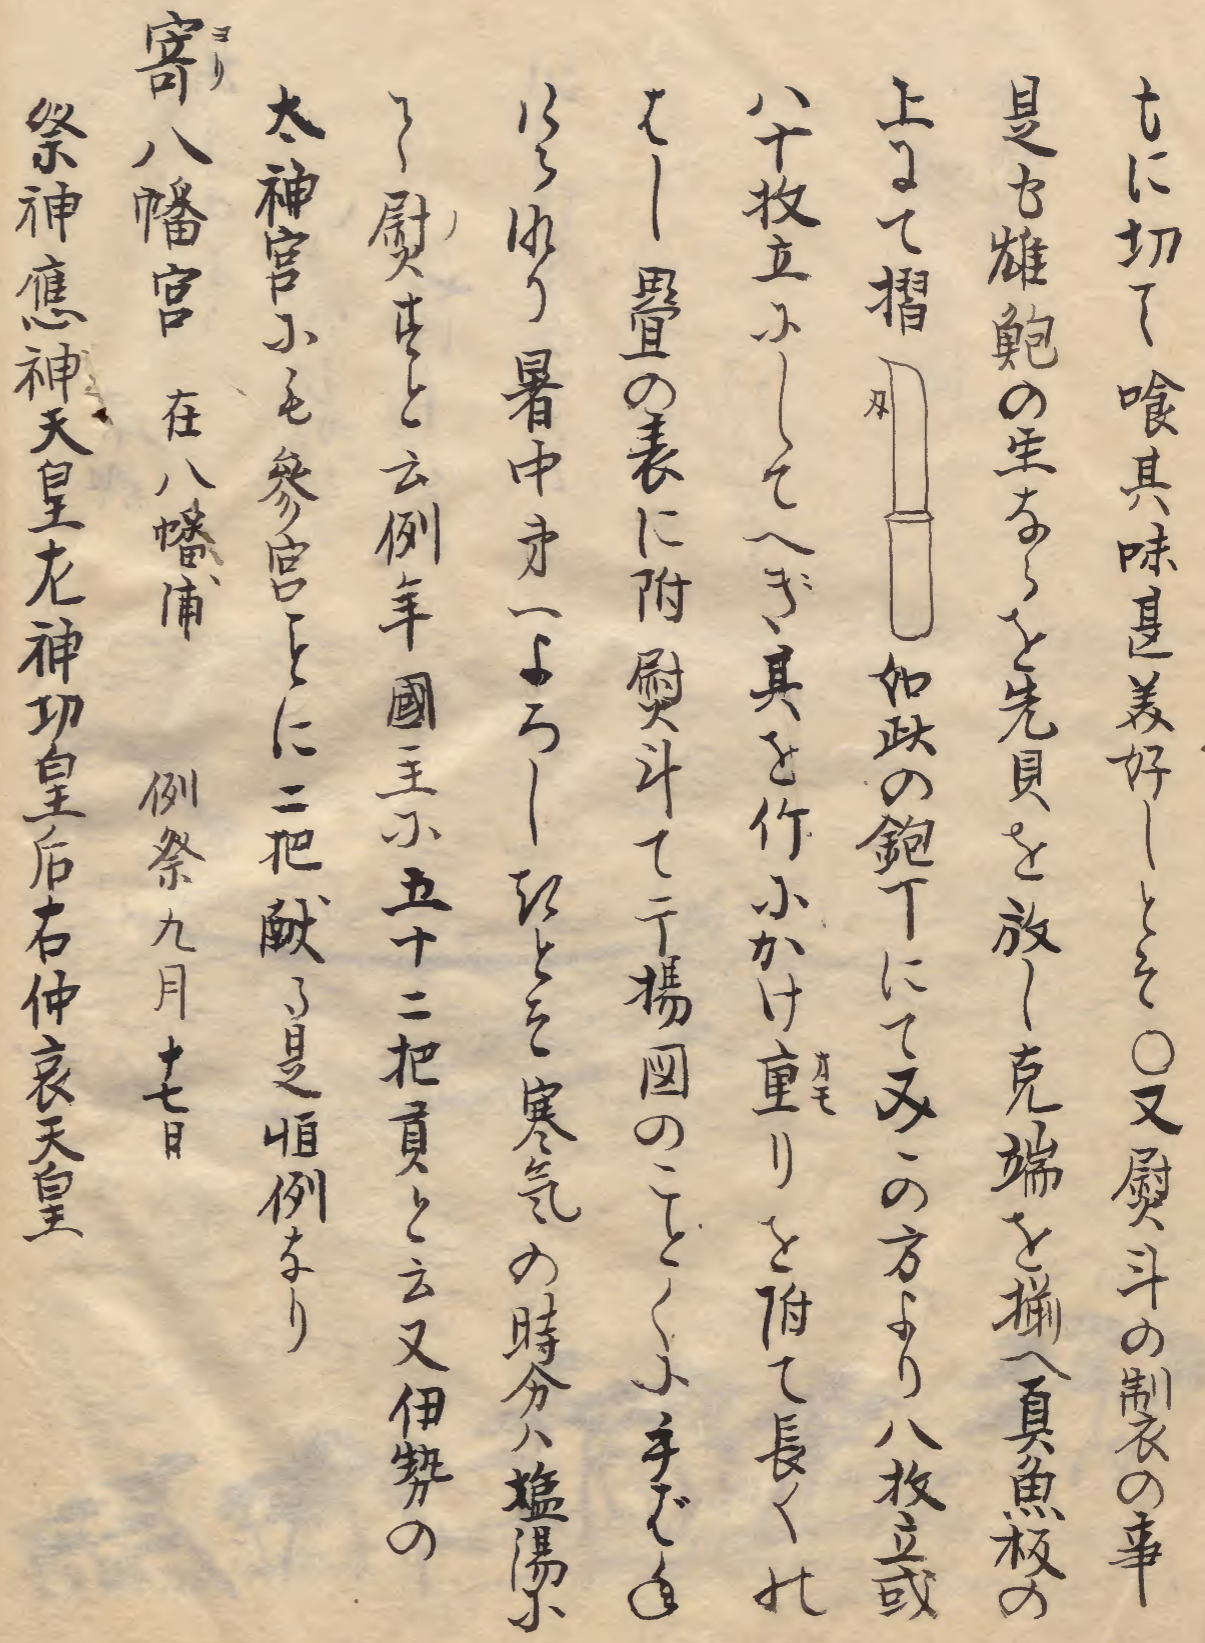 もに切て喰其味甚美好しとそ〇又熨斗の製の事
是も雄鮑の生ならを先貝を放し克端を揃へ真魚板の
上にて摺
刃
如此の鉋丁にて又みこの方より八枚立或
八十枚立にしてへぎ其を竹にかけ重りを附て長くの
オモ
はし畳の表に附熨斗て干揚図のことくに手ばや
にう
暑中第一よろし
とそ寒気の時分ハ塩湯に
て熨すと云例年國主に五十二把貢と云又伊勢の
太神宮にも參宮ことに二把献る是恒例なり
ヨリ
寄八幡宮 在八幡浦 例祭九月十七日
祭神應神天皇左神功皇后右仲哀天皇